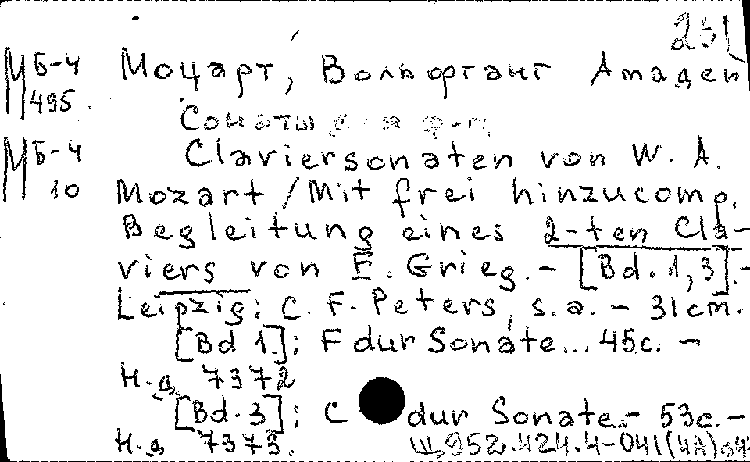 231
МБ-4 Моцарт, Вольфганг Амадей
495.
Сонаты для ф-п
МБ-4 Claviersonaten von W. A.
10 Mozart / Mit frei hinzucomp.
Begleitung eines 2-ten Cla-
viers von E. Grieg. - [Bd. 1, 3]. -
Leipzig: C. F. Peters, s. a. - 31cm.
[Bd 1.]: F dur Sonate... 45c. -
Н.д. 7372
[Bd. 3]: C dur Sonate. - 53c. -
Н.д 7373.
Щ952.424.4-041(4А)